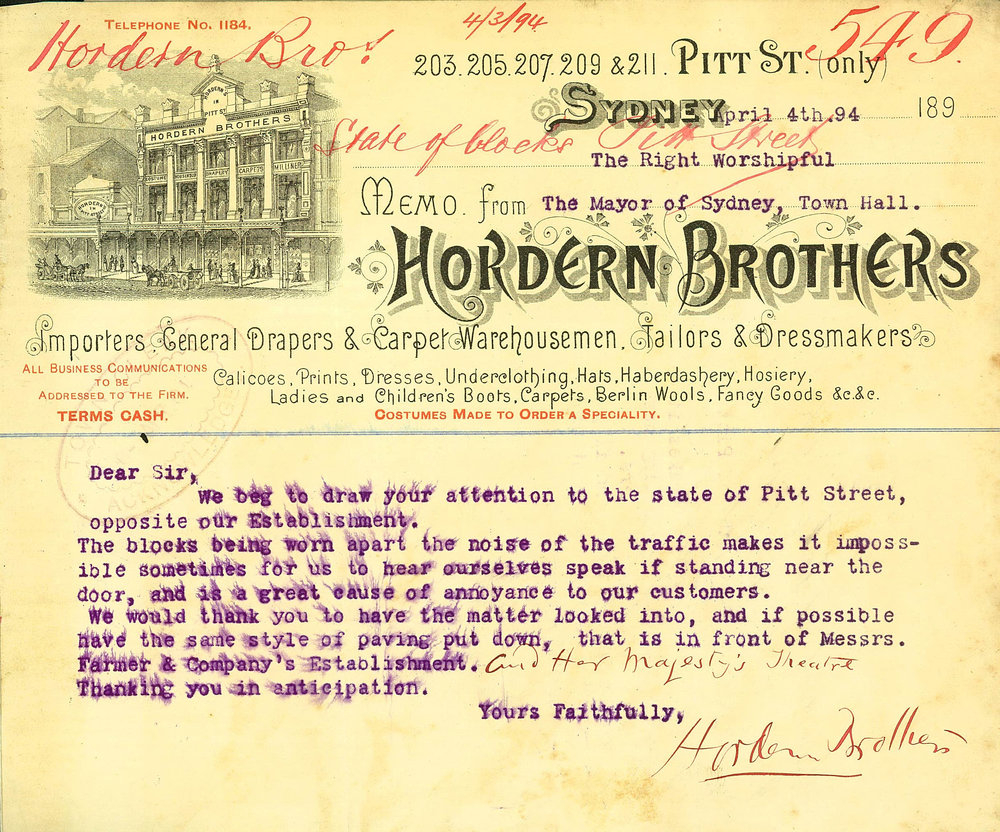 TELEPHONE No. 1184.
4/3/94
549
Hordern Bros
203. 205. 207. 209 & 211. PITT ST. (only)
SYDNEY April 4th.94 189
State of blocks Pitt Street
The Right Worshipful
MEMO. from The Mayor of Sydney, Town Hall.
HORDERN BROTHERS
HORDERN'S
IN
PITT ST
HORDERN BROTHERS
COSTUME
DRAPERY
CARPETS
MILLINERY
Importers, General Drapers & Carpet Warehousemen, Tailors & Dressmakers
ALL BUSINESS COMMUNICATIONS
TO BE
ADDRESSED TO THE FIRM.
TERMS CASH.
Calicoes, Prints, Dresses, Underclothing, Hats, Haberdashery, Hosiery,
Ladies and Children's Boots, Carpets, Berlin Wools, Fancy Goods &c.&c.
COSTUMES MADE TO ORDER A SPECIALITY.
Dear Sir,
We beg to draw your attention to the state of Pitt Street,
opposite our Establishment.
The blocks being worn apart the noise of the traffic makes it imposs-
ible sometimes for us to hear ourselves speak if standing near the
door, and is a great cause of annoyance to our customers.
We would thank you to have the matter looked into, and if possible
have the same style of paving put down, that is in front of Messrs.
Farmer & Company's Establishment. and Her Majesty's Theatre
Thanking you in anticipation.
Yours Faithfully,
Hordern Brothers